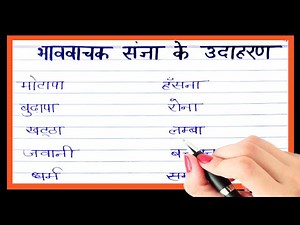 भाववाचक संज्ञा के उदाहरण
मोटापा हँसना
बुढापा रोना
खट्ठा लम्बा
जवानी
धर्म